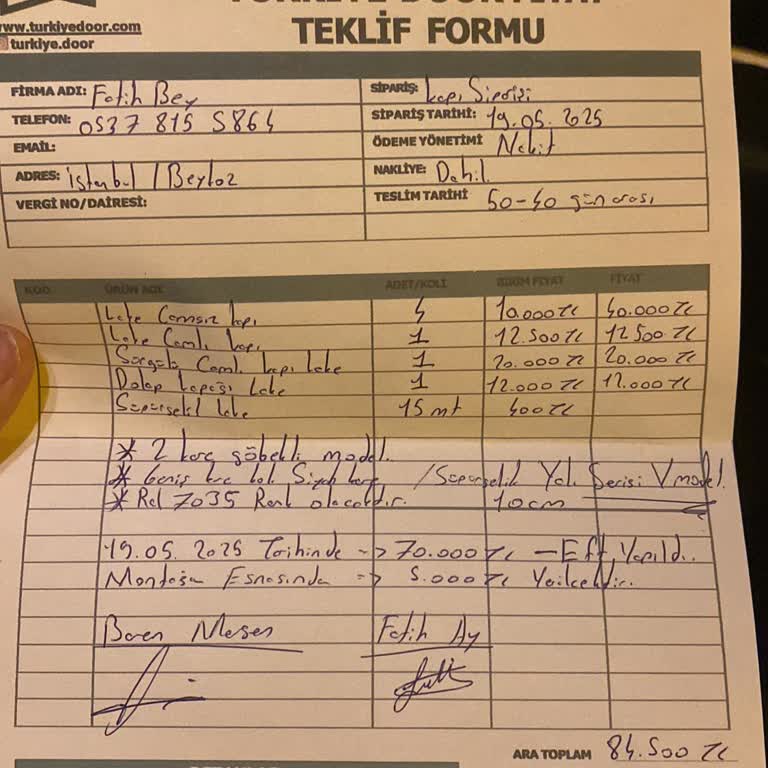 www.turkiyedoor.com
turkiye.door
TEKLİF FORMU
FİRMA ADI: Fatih Bey
SİPARİŞ: kapı Siparişi
TELEFON: 0537 815 5864
SİPARİŞ TARİHİ: 19.05.2025
EMAIL:
ÖDEME YÖNETİMİ Nakit
ADRES: istanbul / Beykoz
NAKLİYE: Dahil
VERGİ NO/DAİRESİ:
TESLİM TARİHİ gün arası
KOD ÜRÜN ADI ADET/KOLİ BİRİM FİYAT FİYAT
Lake Camsız kapı 4 10.000 TL 40.000 TL
Lake Camlı kapı 1 12.500 TL 12.500 TL
Sürgülü Camlı kapı lake 1 20.000 TL 20.000 TL
Dolap kapağı lake 1 12.000 TL 12.000 TL
Süpürgelik lake 15 mt 400 TL
* 2 kare göbekli model.
* Geniş kare kol Siyah / Süpürgelik Yalı Serisi V model.
* Ral 7035 Renk olacaktır. 10cm
19.05.2025 Tarihinde -> 70.000 TL - Eft Yapıldı.
Montajın Esnasında -> TL
Fatih Ay
ARA TOPLAM 84.500 TL